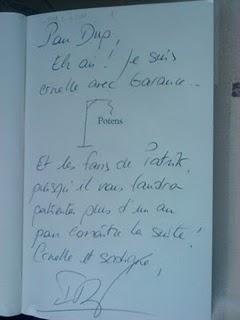 Pour Dup,
Eh oui ! Je suis
cruelle avec Garance...
Potens
Et les fans de Patrik,
puisqu'il vous faudra
patienter plus d'un an
pour connaître la suite !
Cruelle et sadique !